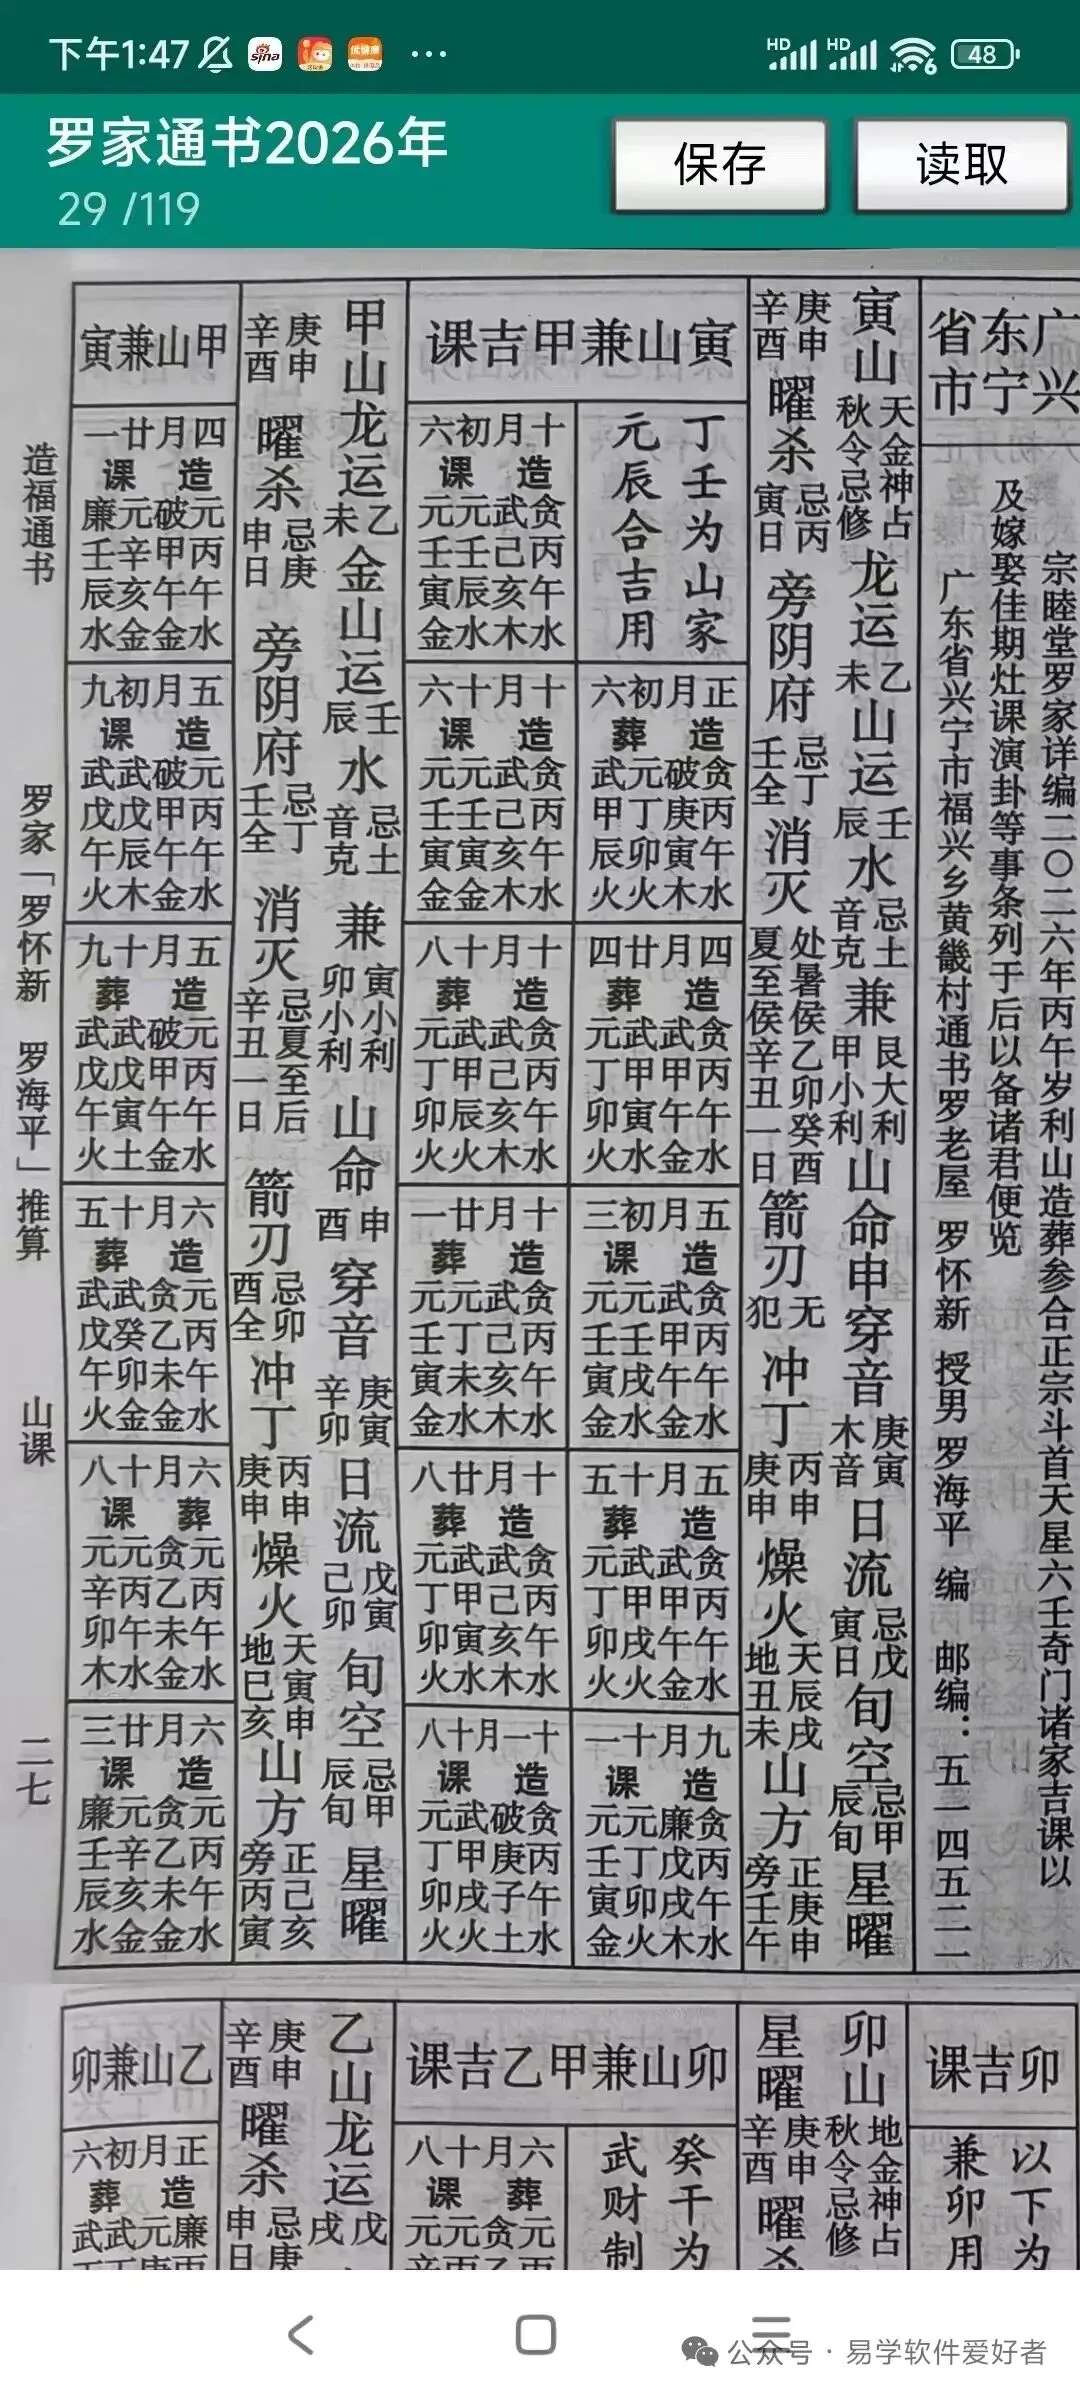 下午1:47
sina
HD
HD
6
48
罗家通书2026年
29 /119
保存
读取
广东省
兴宁市
宗睦堂罗家详编二〇二六年丙午岁利山造葬参合正宗斗首天星六壬奇门诸家吉课以
及嫁娶佳期灶课演卦等事条列于后以备诸君便览
广东省兴宁市福兴乡黄畿村通书罗老屋 罗怀新 授男 罗海平 编 邮编：五一四五二二
寅山 天金神占 秋令忌修 龙运 乙未 山运 壬辰 水 忌土音克 兼 艮大利 甲小利 山命申穿音 庚寅木音 日流 忌戊寅日 旬空 忌甲辰旬 星曜
庚申 辛酉 曜杀 忌丙寅日 旁阴府 忌丁壬全 消灭 处暑侯乙卯癸酉 夏至侯辛丑一日 箭刃 无犯 冲丁 丙申 庚申 燥火 天辰戌 地丑未 山方 正庚申 旁壬午
寅山兼甲吉课
丁壬为山家
元辰合吉用
正月初六
造葬
贪丙午水
破庚寅木
元丁卯火
武甲辰火
四月廿四
造葬
贪丙午水
武甲午金
武甲寅水
元丁卯火
五月初三
造课
贪丙午水
武甲午金
元壬戌水
元壬寅金
五月十五
造葬
贪丙午水
武甲午金
武甲戌火
元丁卯火
九月十一
造课
贪丙午水
廉戊戌木
元丁卯火
元壬寅金
十月初六
造课
贪丙午水
武己亥木
元壬辰水
元壬寅金
十月十六
造课
贪丙午水
武己亥木
元壬寅金
元壬寅金
十月十八
造葬
贪丙午水
武己亥木
武甲辰火
元丁卯火
十月廿一
造葬
贪丙午水
武己亥木
元丁未水
元壬寅金
十月廿八
造葬
贪丙午水
武己亥木
武甲寅水
元丁卯火
十一月十八
造课
贪丙午水
破庚子土
武甲戌火
元丁卯火
甲山龙运 乙未 金山运 壬辰 水 忌土音克 兼 寅小利 卯小利 山命 申酉 穿音 庚寅 辛卯 日流 戊寅 己卯 旬空 忌甲辰旬 星曜
庚申 辛酉 曜杀 忌庚申日 旁阴府 忌丁壬全 消灭 忌夏至后辛丑一日 箭刃 忌卯酉全 冲丁 丙申 庚申 燥火 天寅申 地巳亥 山方 正己亥 旁丙寅
甲山兼寅
四月廿一
造课
元丙午水
破甲午金
元辛亥金
廉壬辰水
五月初九
造课
元丙午水
破甲午金
武戊辰木
武戊午火
五月十九
造葬
元丙午水
破甲午金
武戊寅土
武戊午火
六月十五
造葬
元丙午水
贪乙未金
武癸卯金
武戊午火
六月十八
葬课
元丙午水
贪乙未金
元丙午水
元辛卯木
六月廿三
造课
元丙午水
贪乙未金
元辛亥金
廉壬辰水
造福通书
罗家「罗怀新 罗海平」推算
山课
二七
卯吉课
以下为
兼卯用
卯山 地金神占 秋令忌修
星曜 庚申 辛酉 曜
卯山兼甲乙吉课
癸干为
武财制
六月十八
葬课
元贪元元
乙山龙运 戊戌
庚申 辛酉 曜杀 忌庚申日
乙山兼卯
正月初六
造葬
廉元武武
公众号 · 易学软件爱好者